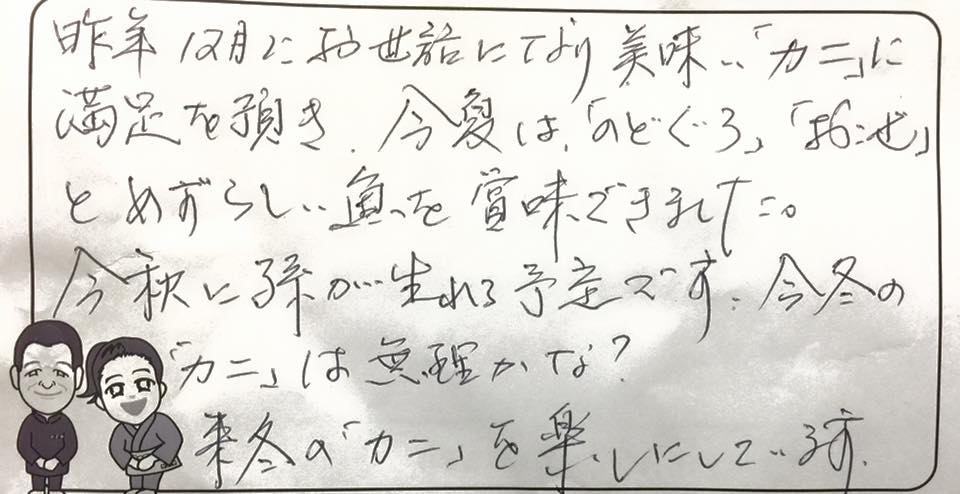 昨年12月にお世話になり美味い「カニ」に
満足を頂き、今夏は、「のどぐろ」「おこぜ」
とめずらしい魚を賞味できました。
今秋に孫が生れる予定です。今冬の
「カニ」は無理かな?
来冬の「カニ」を楽しみにしています.